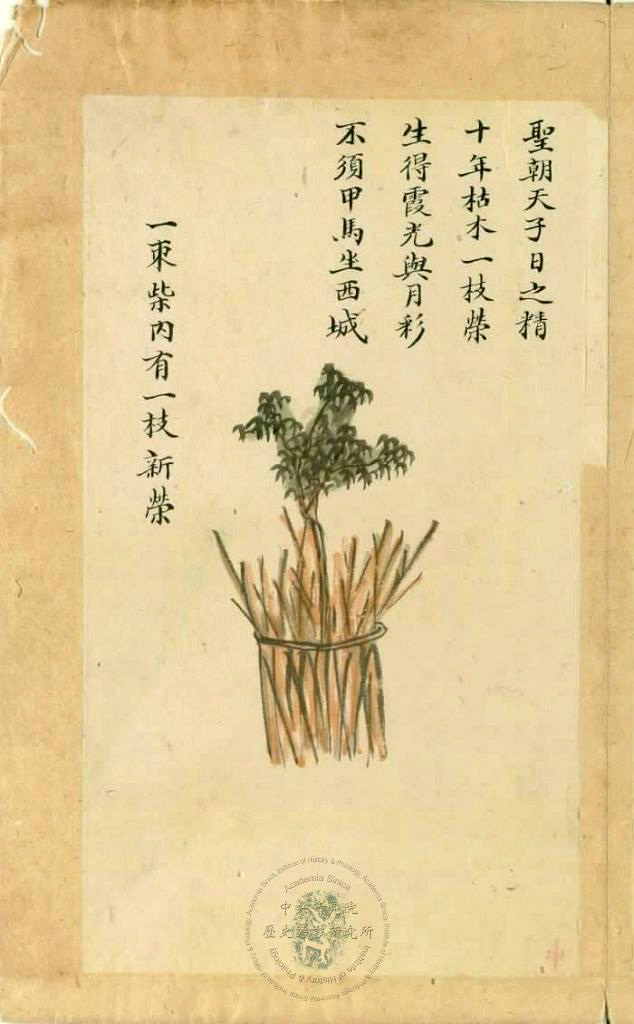 聖朝天子日之精
十年枯木一枝榮
生得霞光與月彩
不須甲馬坐西城
一束柴内有一枝新榮
Academia Sinica
中央研究院
歷史語言研究所
Institute of History & Philology